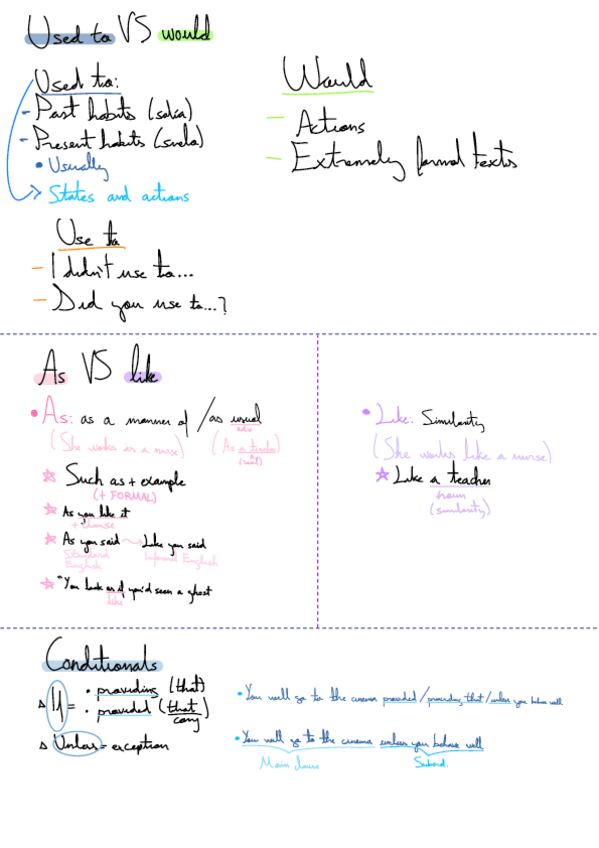 Used to VS would
Used to:
- Past habits (solía)
- Present habits (suelo)
• Usually
States and actions
Use to
- I didn't use to...
- Did you use to...?
Would
- Actions
- Extremely formal texts
As VS like
• As: as a manner of / as usual
adv
(She works as a nurse) (As a teacher)
(real)
Such as + example
(+ FORMAL)
As you like it
+ clause
As you said → Like you said
Standard English
Informal English
"You look as if you'd seen a ghost
like
• Like: Similarity
(She works like a nurse)
Like a teacher
noun
(similarity)
Conditionals
If = • providing (that)
• provided (that)
Unless = exception
• You will go to the cinema provided / providing that / unless you behave well
• You will go to the cinema unless you behave well
Main clause
Subord.